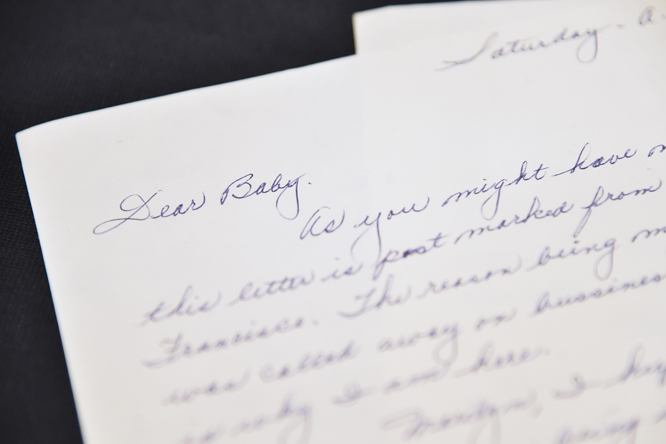 Saturday - A.
Dear Baby.
As you might have
this letter is post marked from
Francisco. The reason being
was called away on bussiness
is why I am here.
Marilyn, I
being